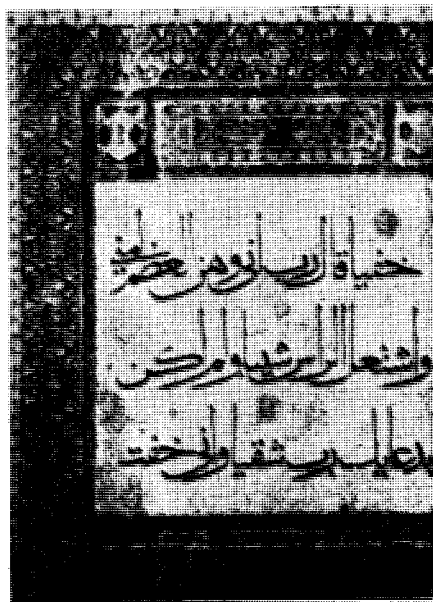 خفيا قال رب اني وهن العظم مني
واشتعل الراس شيبا ولم اكن
بدعايك رب شقيا واني خفت